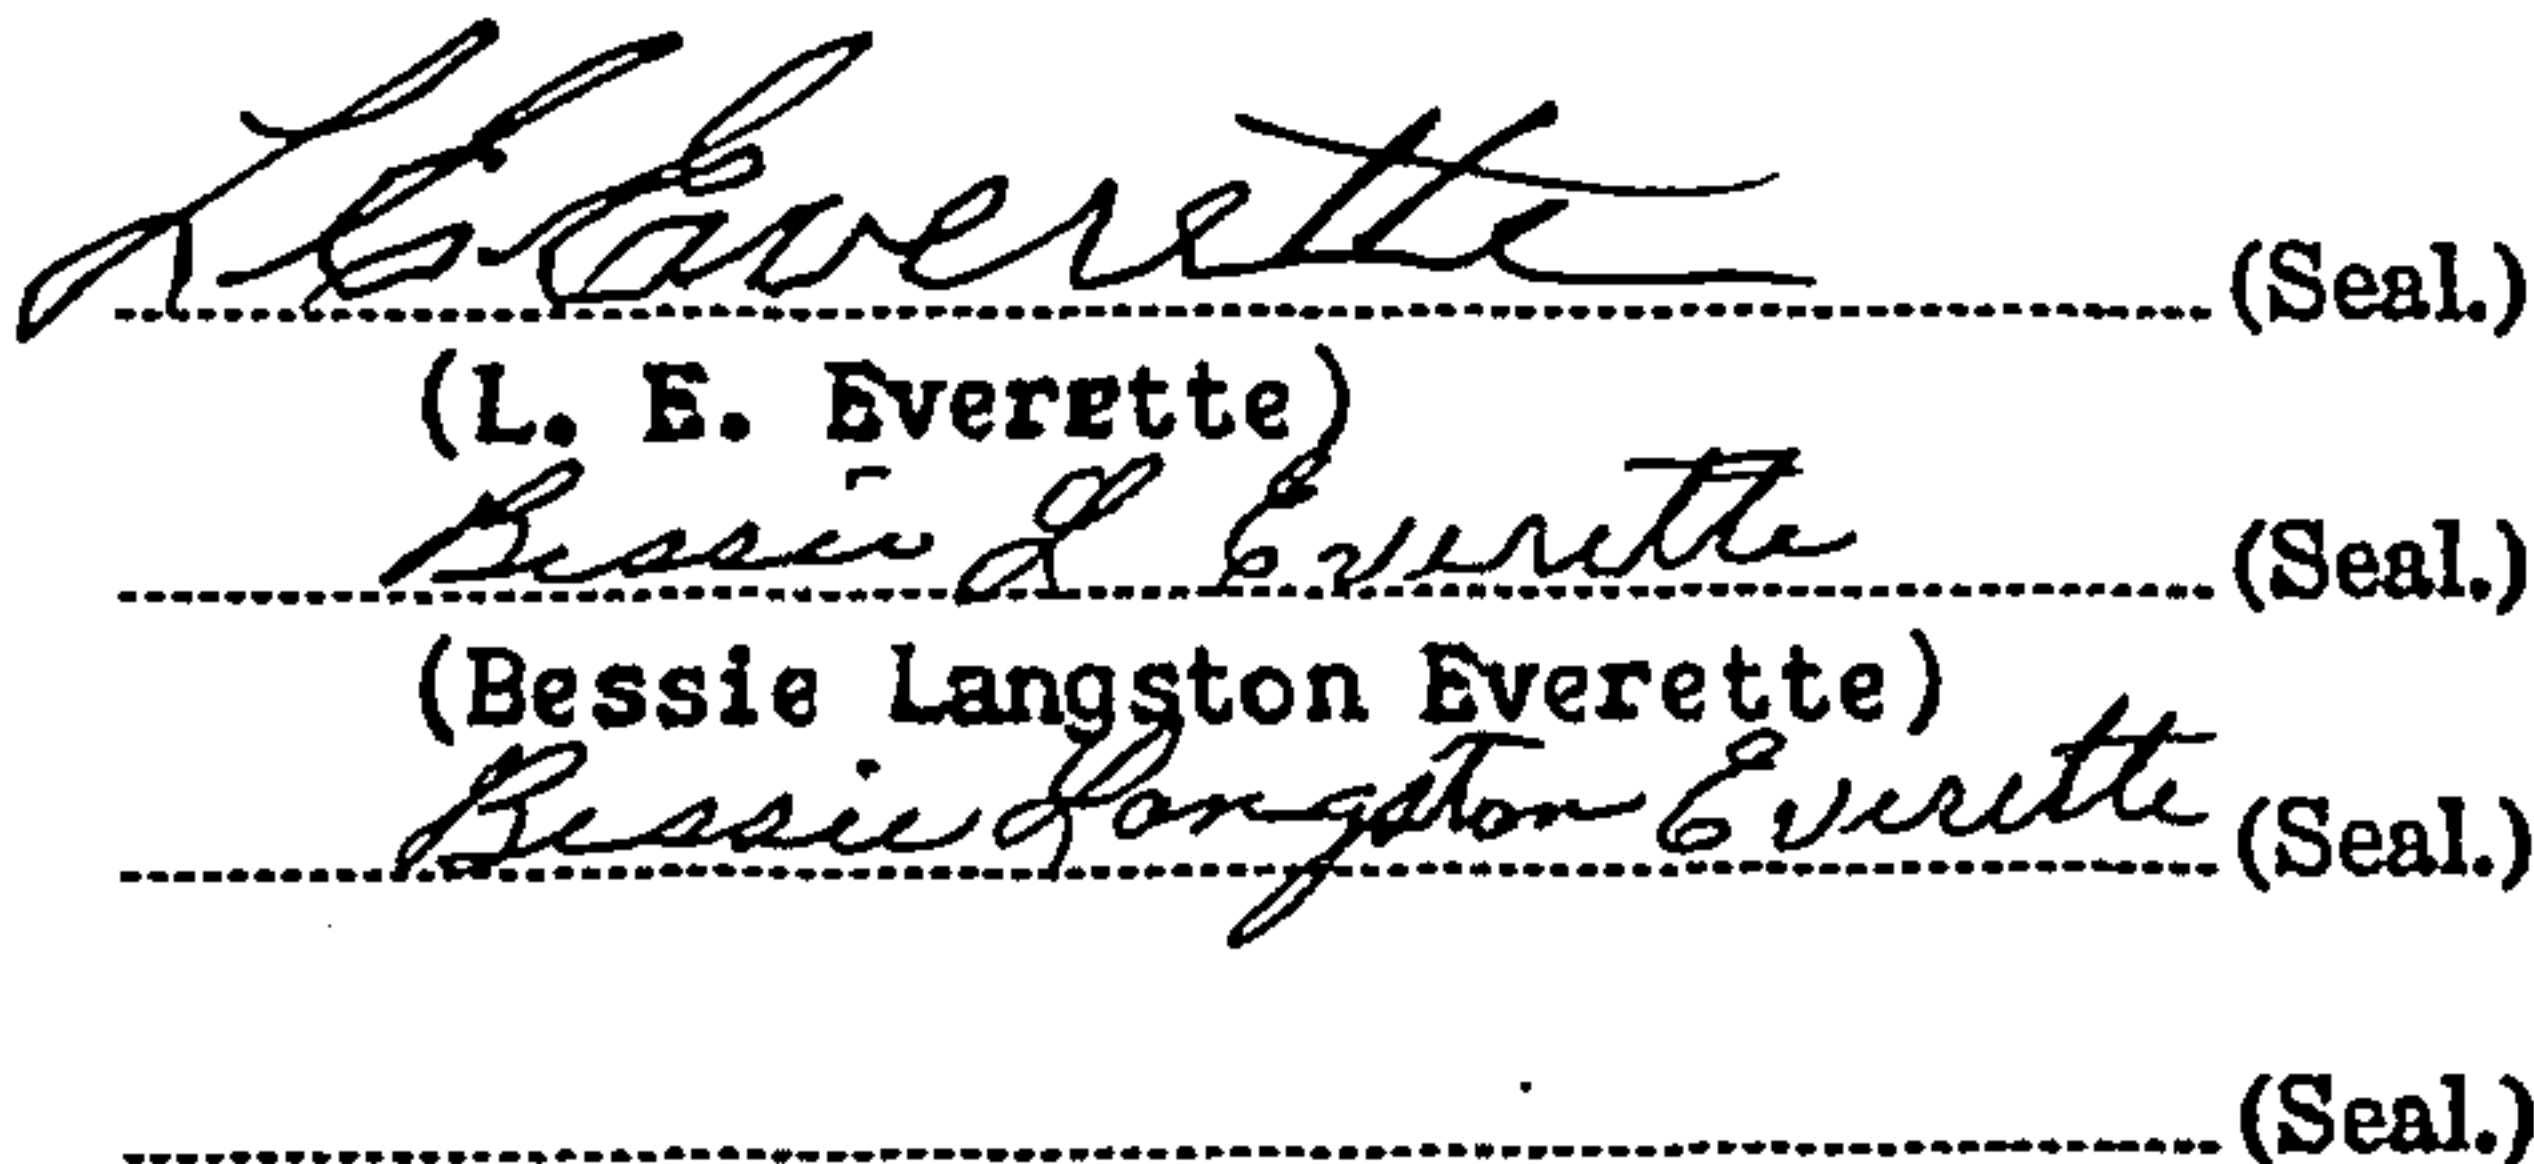 L E Everette (Seal.)
(L. E. Everette)
Bessie L Everette (Seal.)
(Bessie Langston Everette)
Bessie Langston Everette (Seal.)
(Seal.)